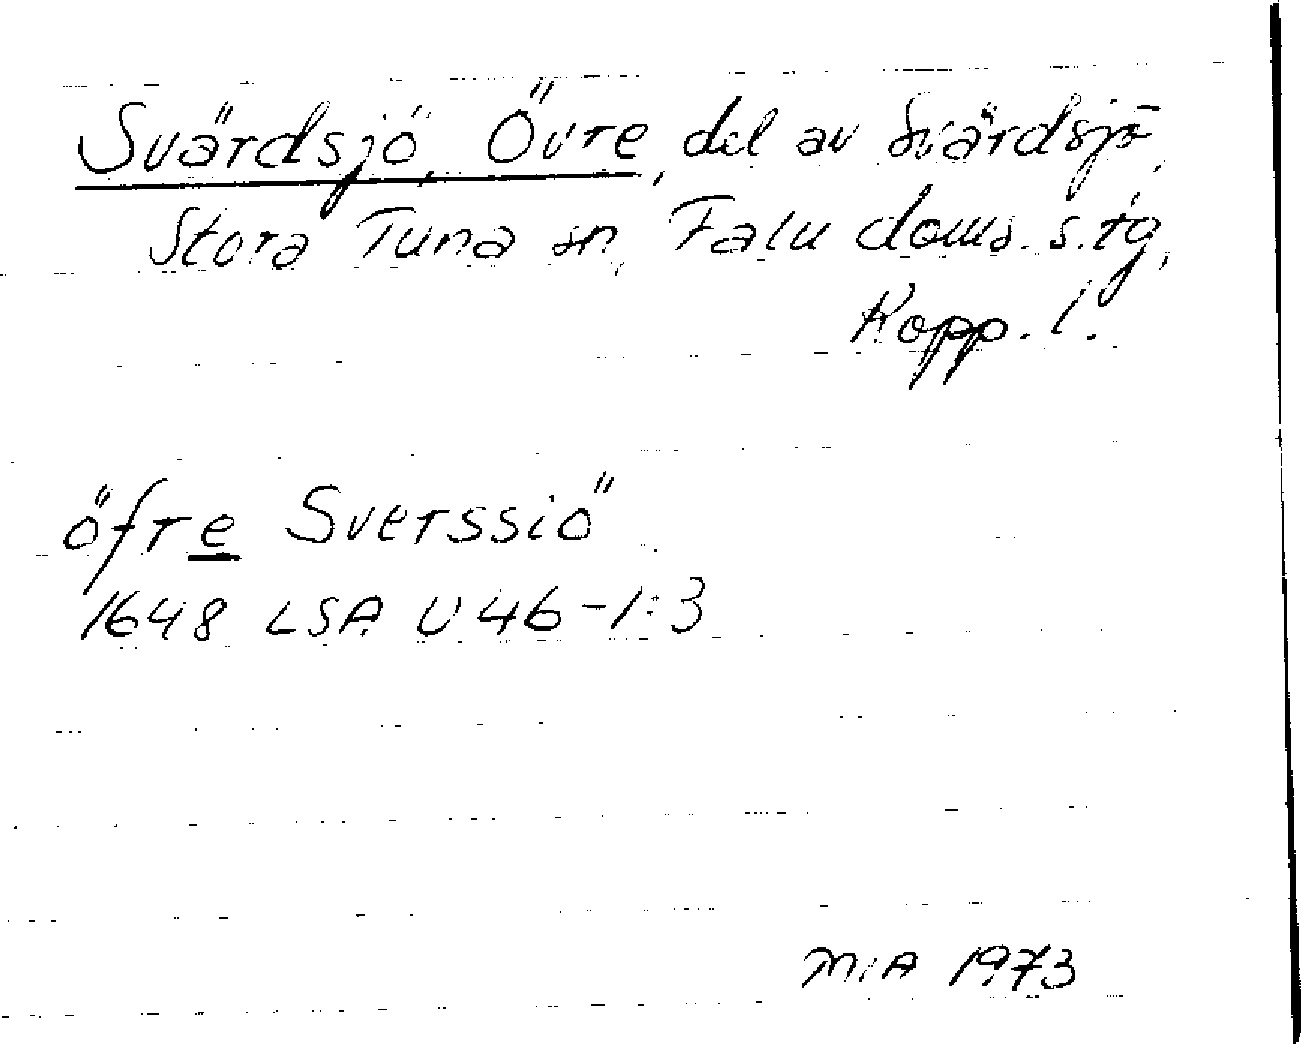 Svärdsjö, Övre, del av Svärdsjö,
Stora Tuna sn, Falu doms. s. tg,
Kopp. l.
öfre Sverssiö
1648 LSA U 46-1:3
MIA 1973